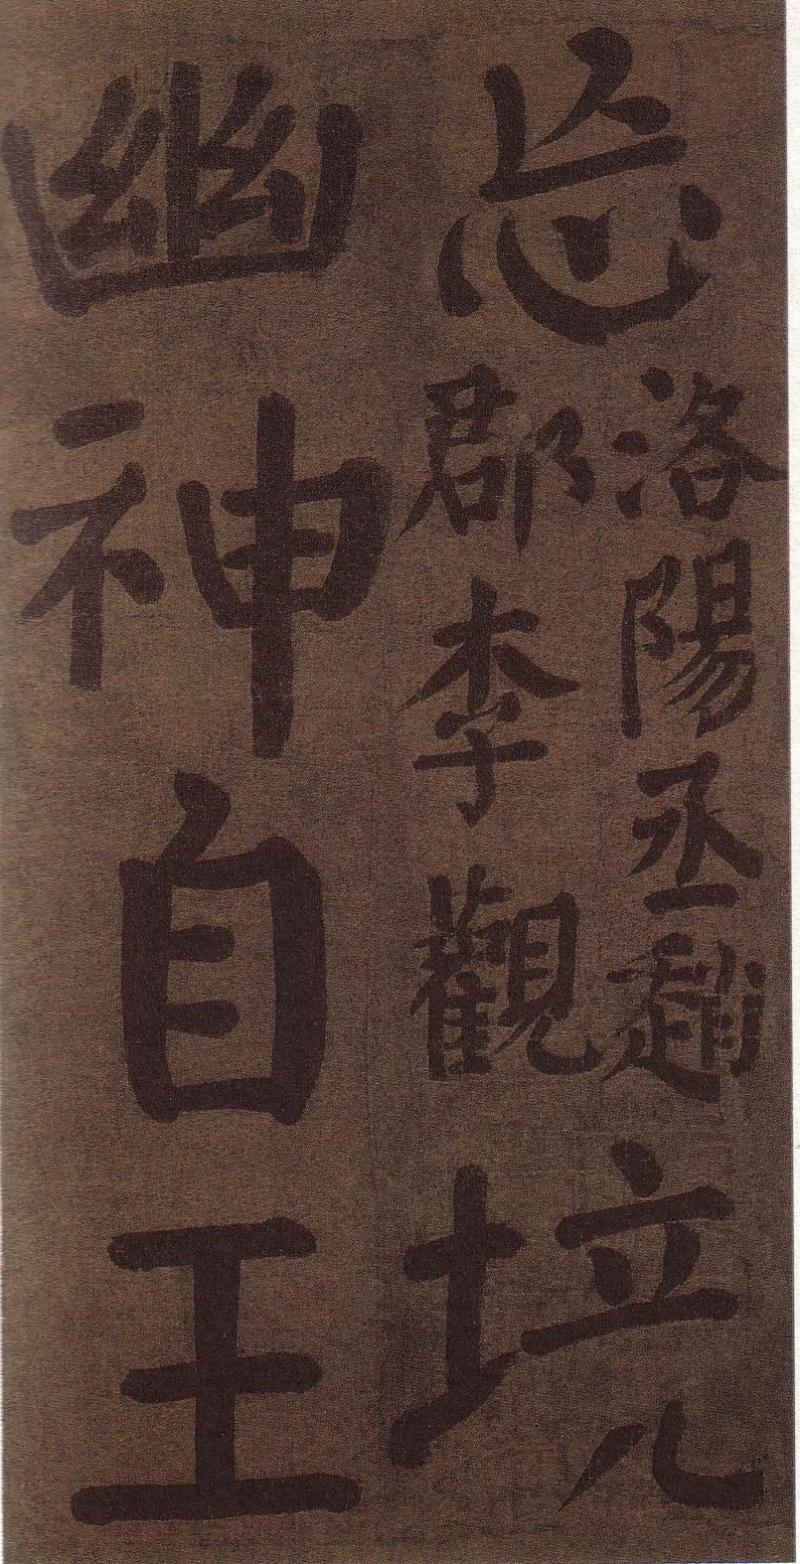 忘
洛陽丞趙
郡李觀
境
幽神自王